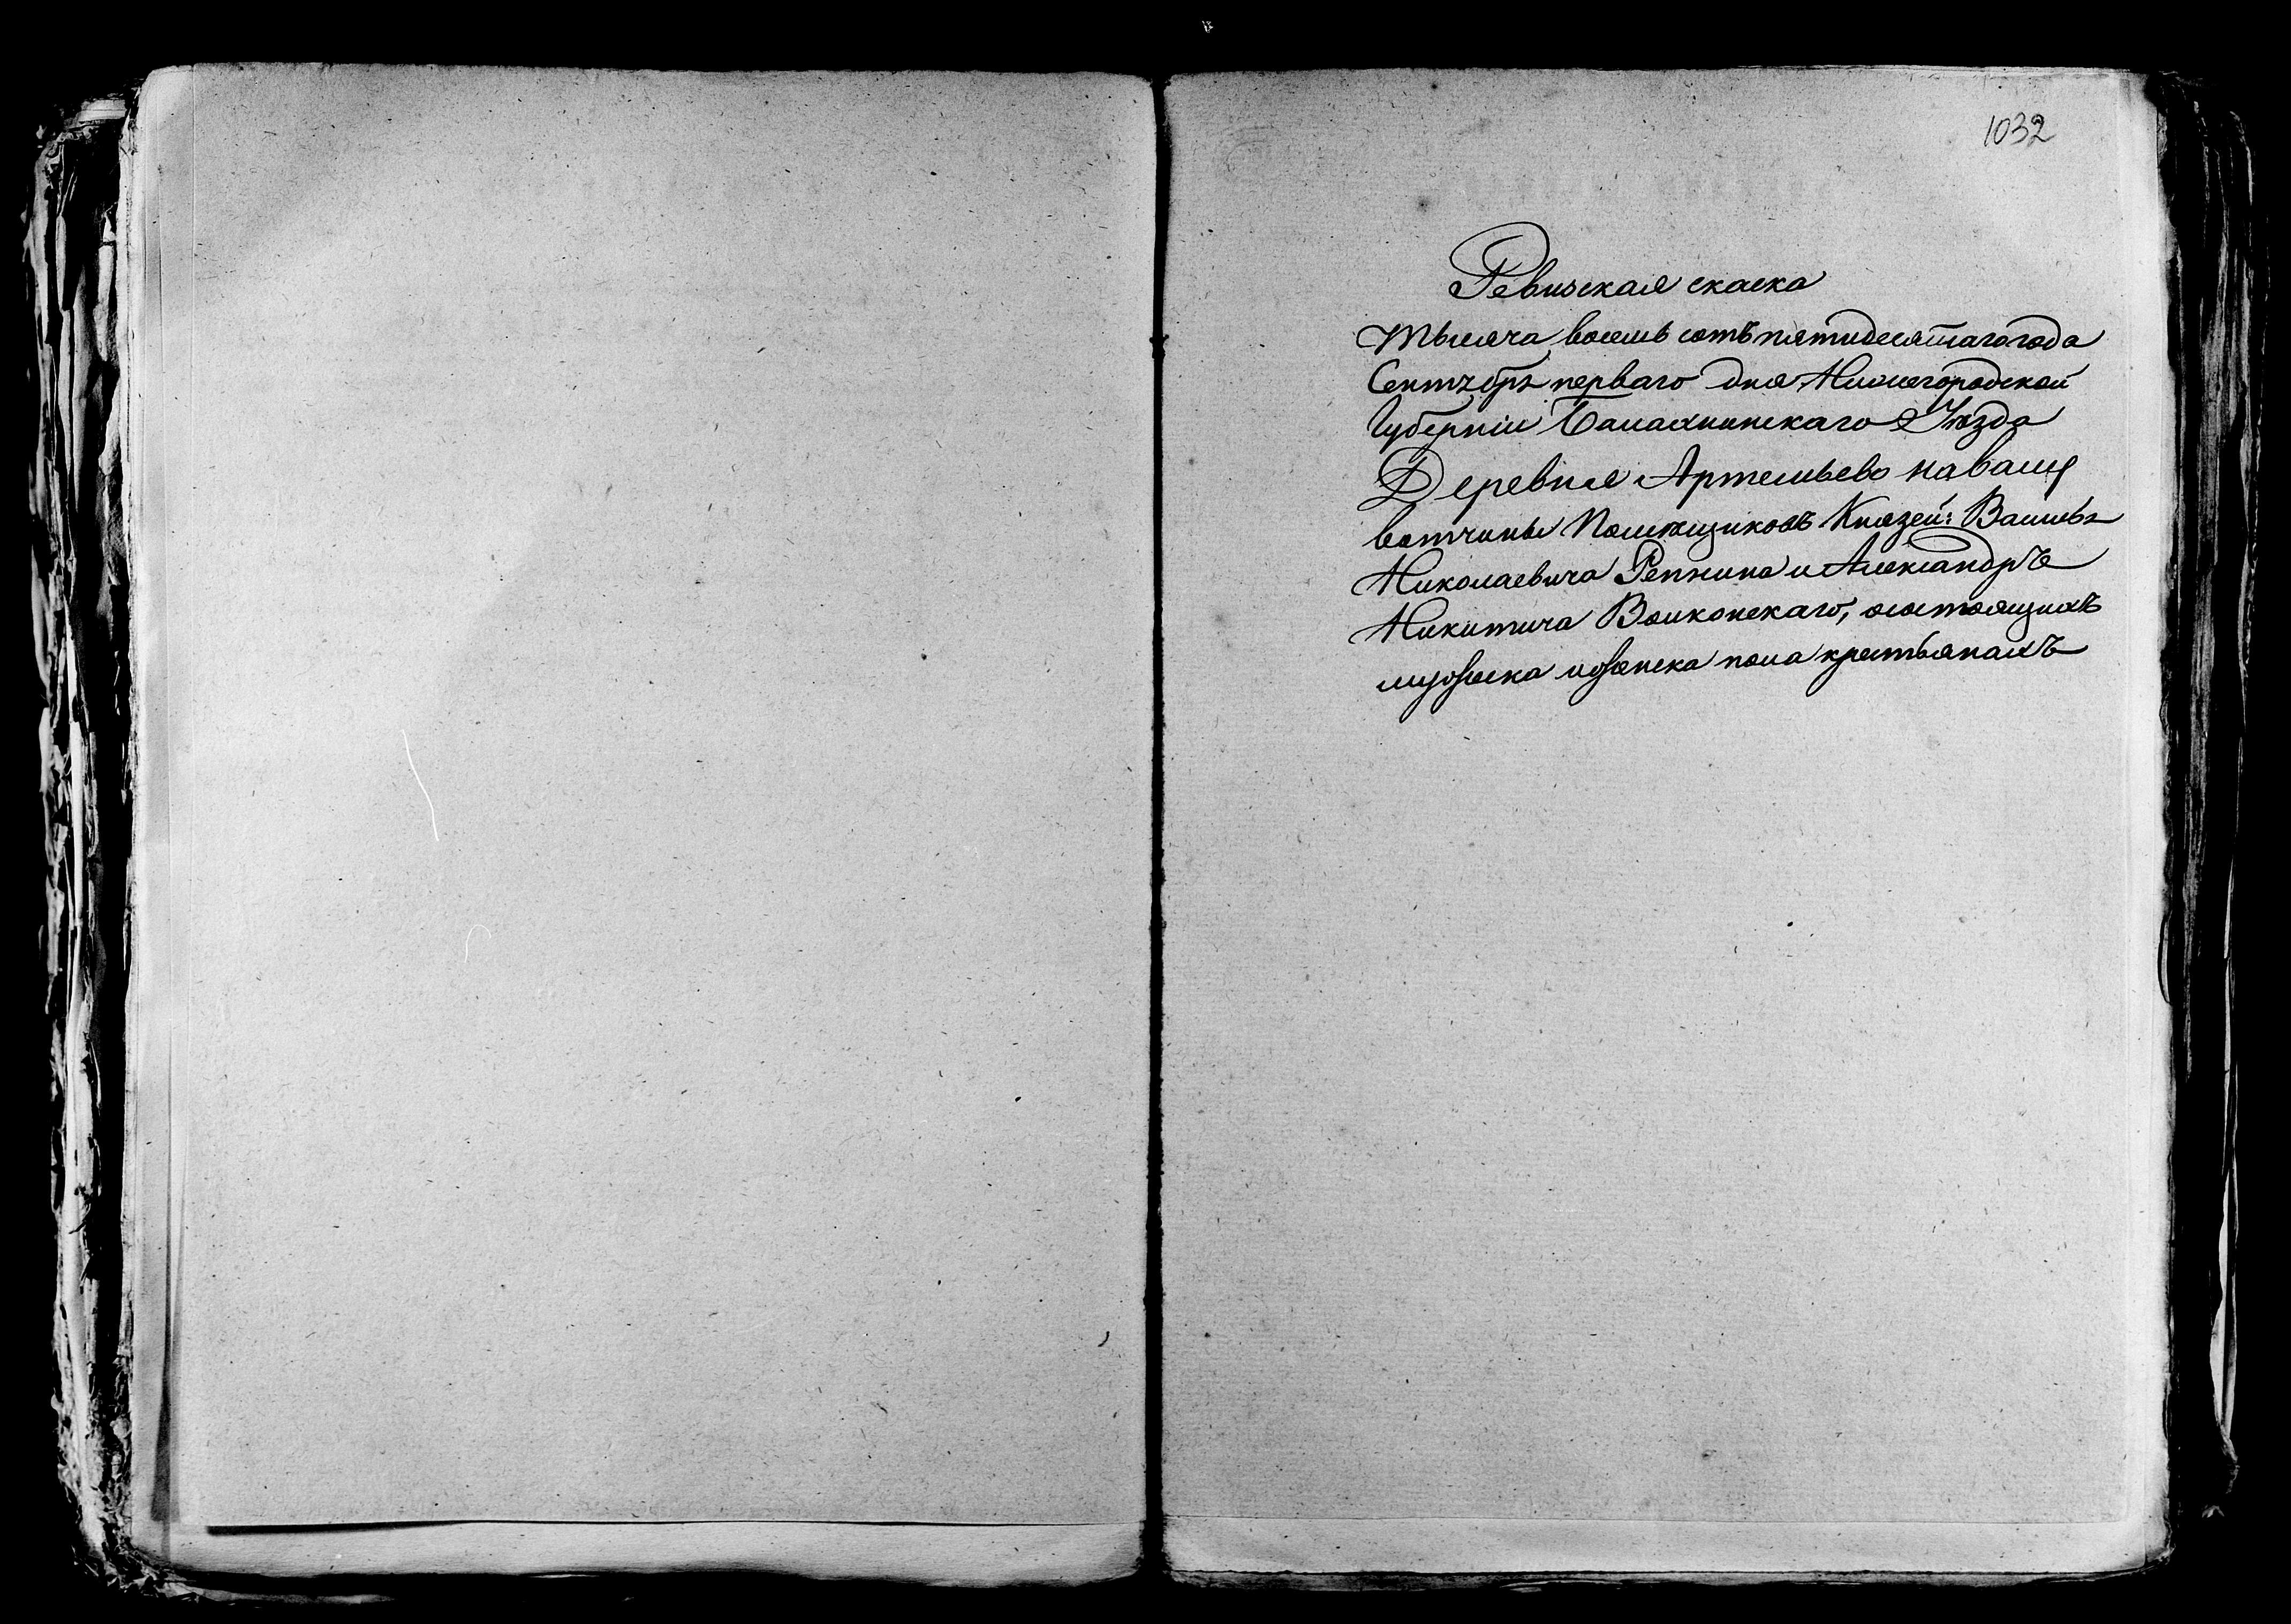 1032
Ревизская скаска
Тысяча восемь сотъ пятидесятаго года
Сентября перваго дня Нижегородской
Губерніи Балахнинскаго Уѣзда
Деревня Артемьево
вотчины Помѣщиковъ Князей: Василья
Николаевича Репнина и Александръ
Никитича Волконскаго, о состоящихъ
мужеска и женска пола крестьянахъ